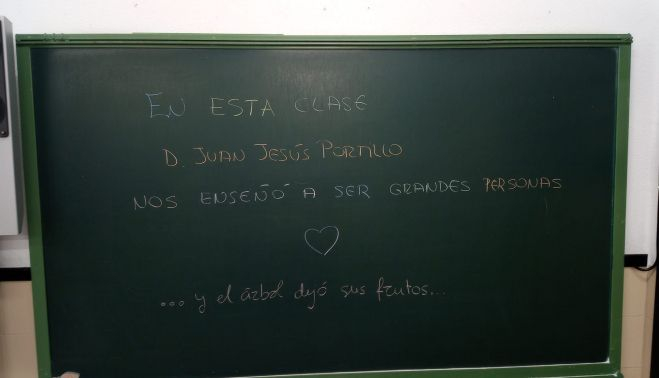 EN ESTA CLASE
D. JUAN JESÚS PORTILLO
NOS ENSEÑÓ A SER GRANDES PERSONAS
... y el árbol dejó sus frutos...